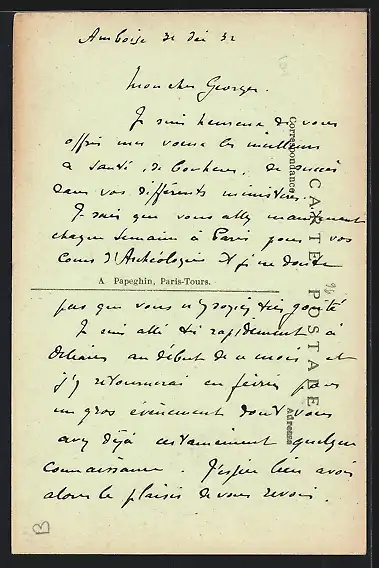 Amboise 31 Déc 32
Mon cher Georges.
Je suis heureux de vous
offrir mes voeux les meilleurs
de santé, de bonheur, de succès
dans vos différents ministères.
Je sais que vous allez maintenant
chaque semaine à Paris pour vos
cours d'Archéologie et je ne doute
pas que vous n'y soyiez très goûté
Je suis allé très rapidement à
Orléans au début de ce mois et
j'y retournerai en février pour
un gros événement dont vous
avez déjà certainement quelque
connaissance. J'espère bien avoir
alors le plaisir de vous revoir.
CARTE POSTALE
Correspondance
Adresse
A Papeghin, Paris-Tours.
B